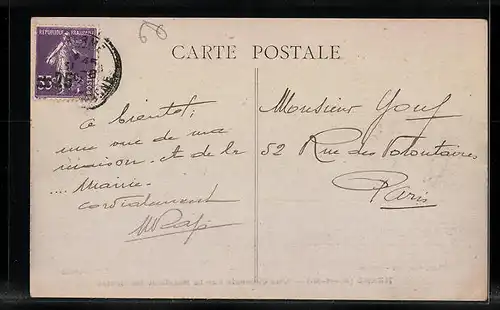 60
CARTE POSTALE
REPUBLIQUE FRANÇAISE
35
à bientôt;
une vue de ma
maison. et de la
.... Mairie.
cordialement
Monsieur
52 Rue des Volontaires
Paris